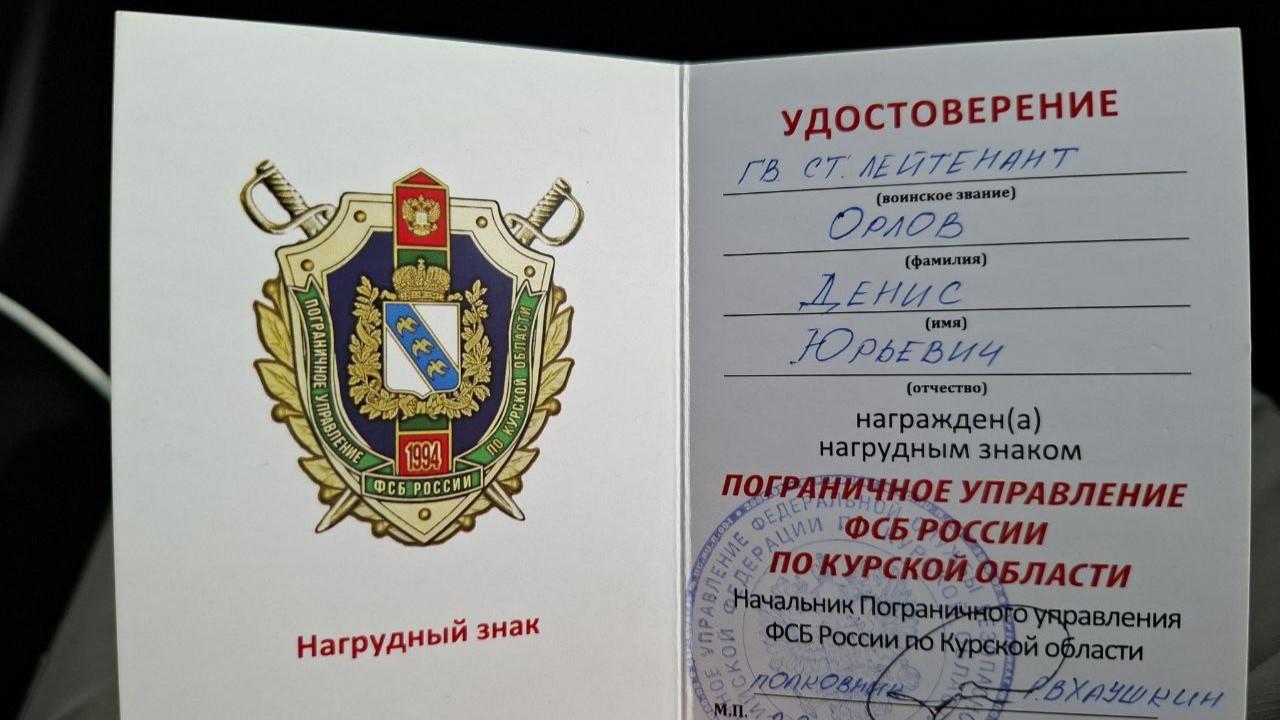 ПОГРАНИЧНОЕ УПРАВЛЕНИЕ
ПО КУРСКОЙ ОБЛАСТИ
1994
ФСБ РОССИИ
Нагрудный знак
УДОСТОВЕРЕНИЕ
ГВ. СТ. ЛЕЙТЕНАНТ
(воинское звание)
ОРЛОВ
(фамилия)
ДЕНИС
(имя)
ЮРЬЕВИЧ
(отчество)
награжден(а)
нагрудным знаком
ПОГРАНИЧНОЕ УПРАВЛЕНИЕ
ФСБ РОССИИ
ПО КУРСКОЙ ОБЛАСТИ
Начальник Пограничного управления
ФСБ России по Курской области
ПОЛКОВНИК
М.П.
УПРАВЛЕНИЕ ФЕДЕРАЛЬНОЙ СЛУЖБЫ
ФЕДЕРАЦИИ ПО